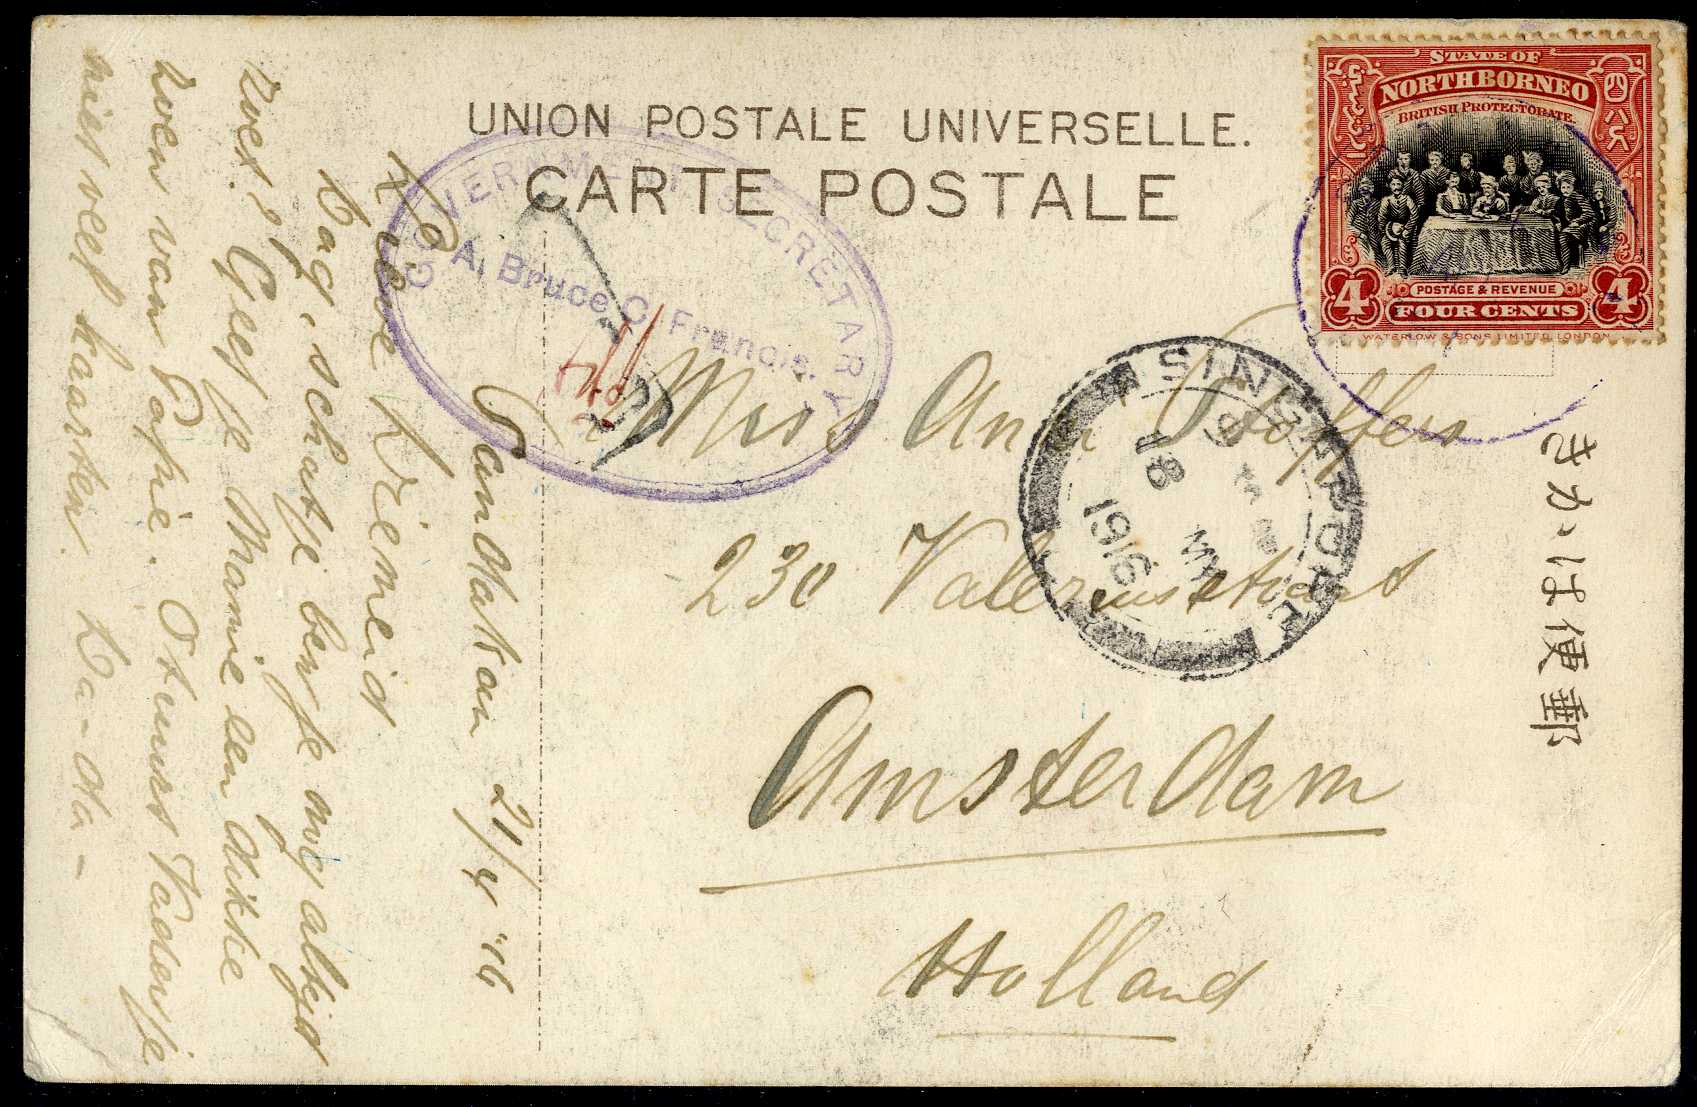 UNION POSTALE UNIVERSELLE.
CARTE POSTALE
STATE OF
NORTH BORNEO
BRITISH PROTECTORATE.
POSTAGE & REVENUE
4 FOUR CENTS 4
WATERLOW & SONS LIMITED, LONDON
GOVERNMENT SECRETARY
A. Bruce C. Francis.
SINGAPORE
18 MY
1916
郵便はがき
Miss Ann
230 Valeriusstraat
Amsterdam
Holland
Sandakan 21/4 '16
Lieve
Dag, schatje ben je nog altijd
zoet? Geef je Mamie een dikke
zoen van Papie. Vadertje
niet veel kaarten. Da-da-